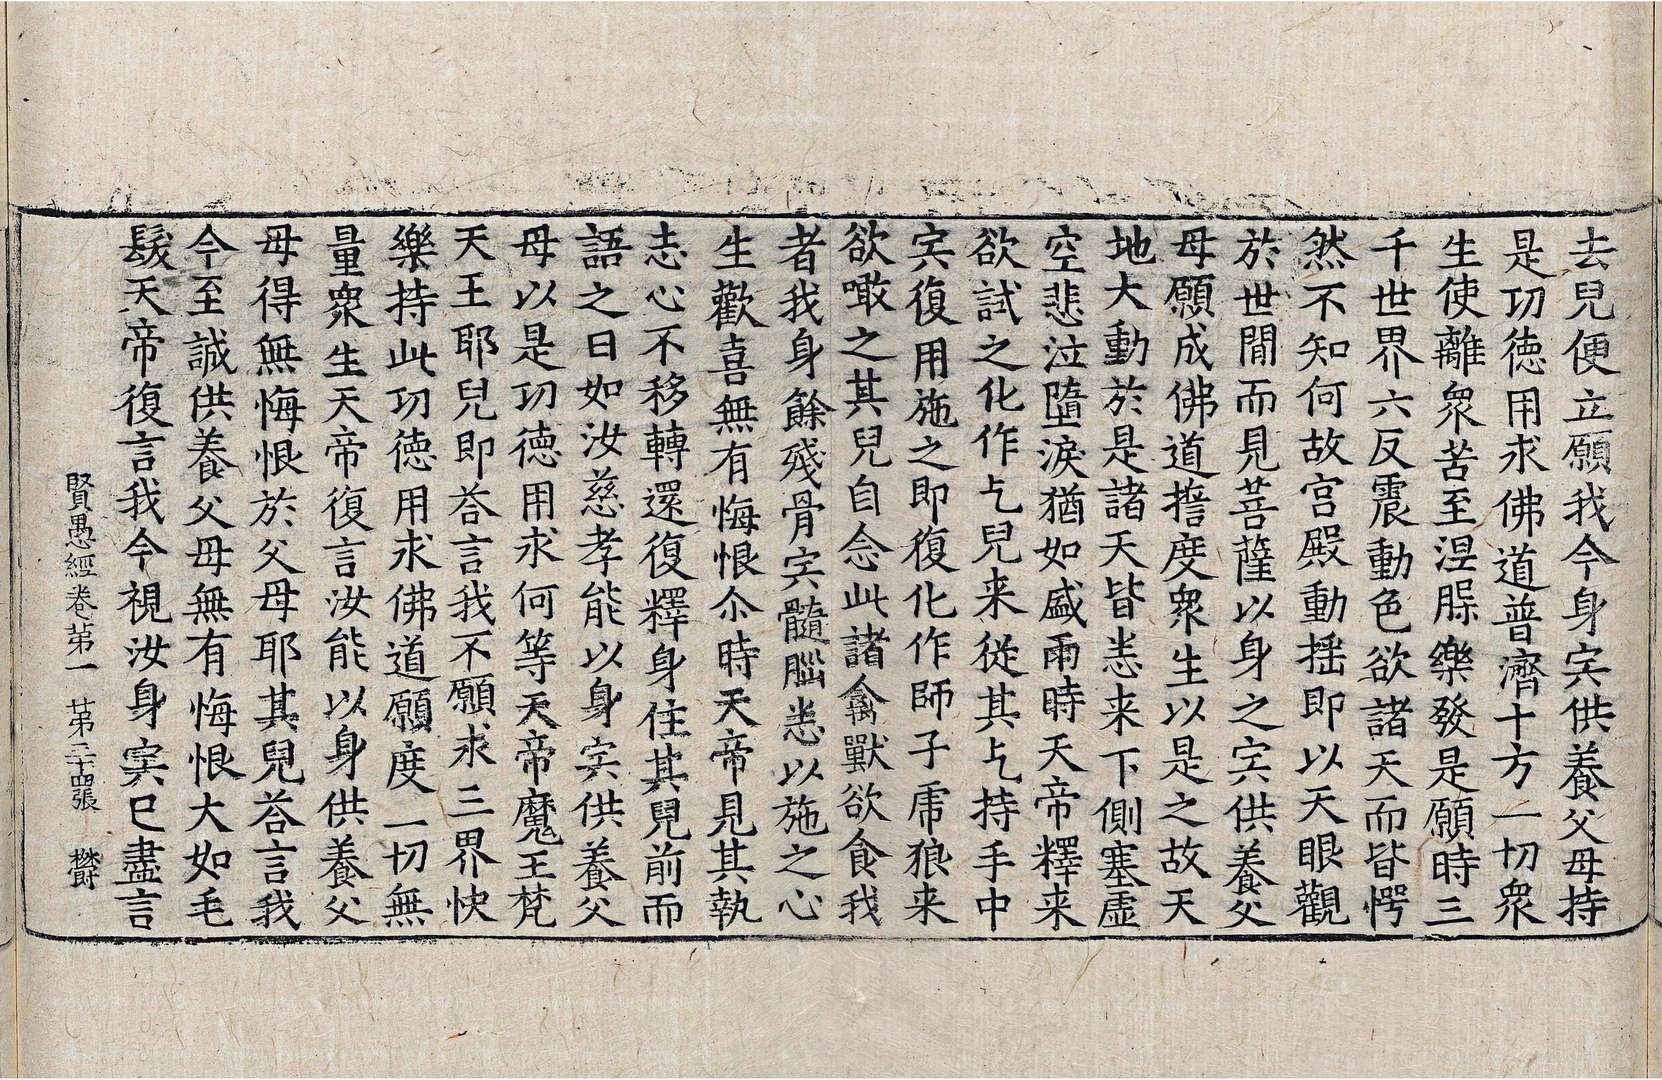 去兒便立願我今身宍供養父母持
是功徳用求佛道普濟十方一切衆
生使離衆苦至涅槃樂發是願時三
千世界六反震動色欲諸天而皆愕
然不知何故宫殿動揺即以天眼觀
於世間而見菩薩以身之宍供養父
母願成佛道擔度衆生以是之故天
地大動於是諸天皆悉来下側塞虚
空悲泣墮淚猶如盛雨時天帝釋来
欲試之化作乞兒来從其乞持手中
宍復用施之即復化作師子虎狼来
欲噉之其兒自念此諸禽獸欲食我
者我身餘殘骨宍髓腦悉以施之心
生歡喜無有悔恨尒時天帝見其執
志心不移轉還復釋身住其兒前而
語之曰如汝慈孝能以身宍供養父
母以是功德用求何等天帝魔王梵
天王耶兒即荅言我不願求三界快
樂持此功德用求佛道願度一切無
量衆生天帝復言汝能以身供養父
母得無悔恨於父母耶其兒荅言我
今至誠供養父母無有悔恨大如毛
髮天帝復言我今視汝身宍已盡言
賢愚經卷苐一 苐二十四張 欝